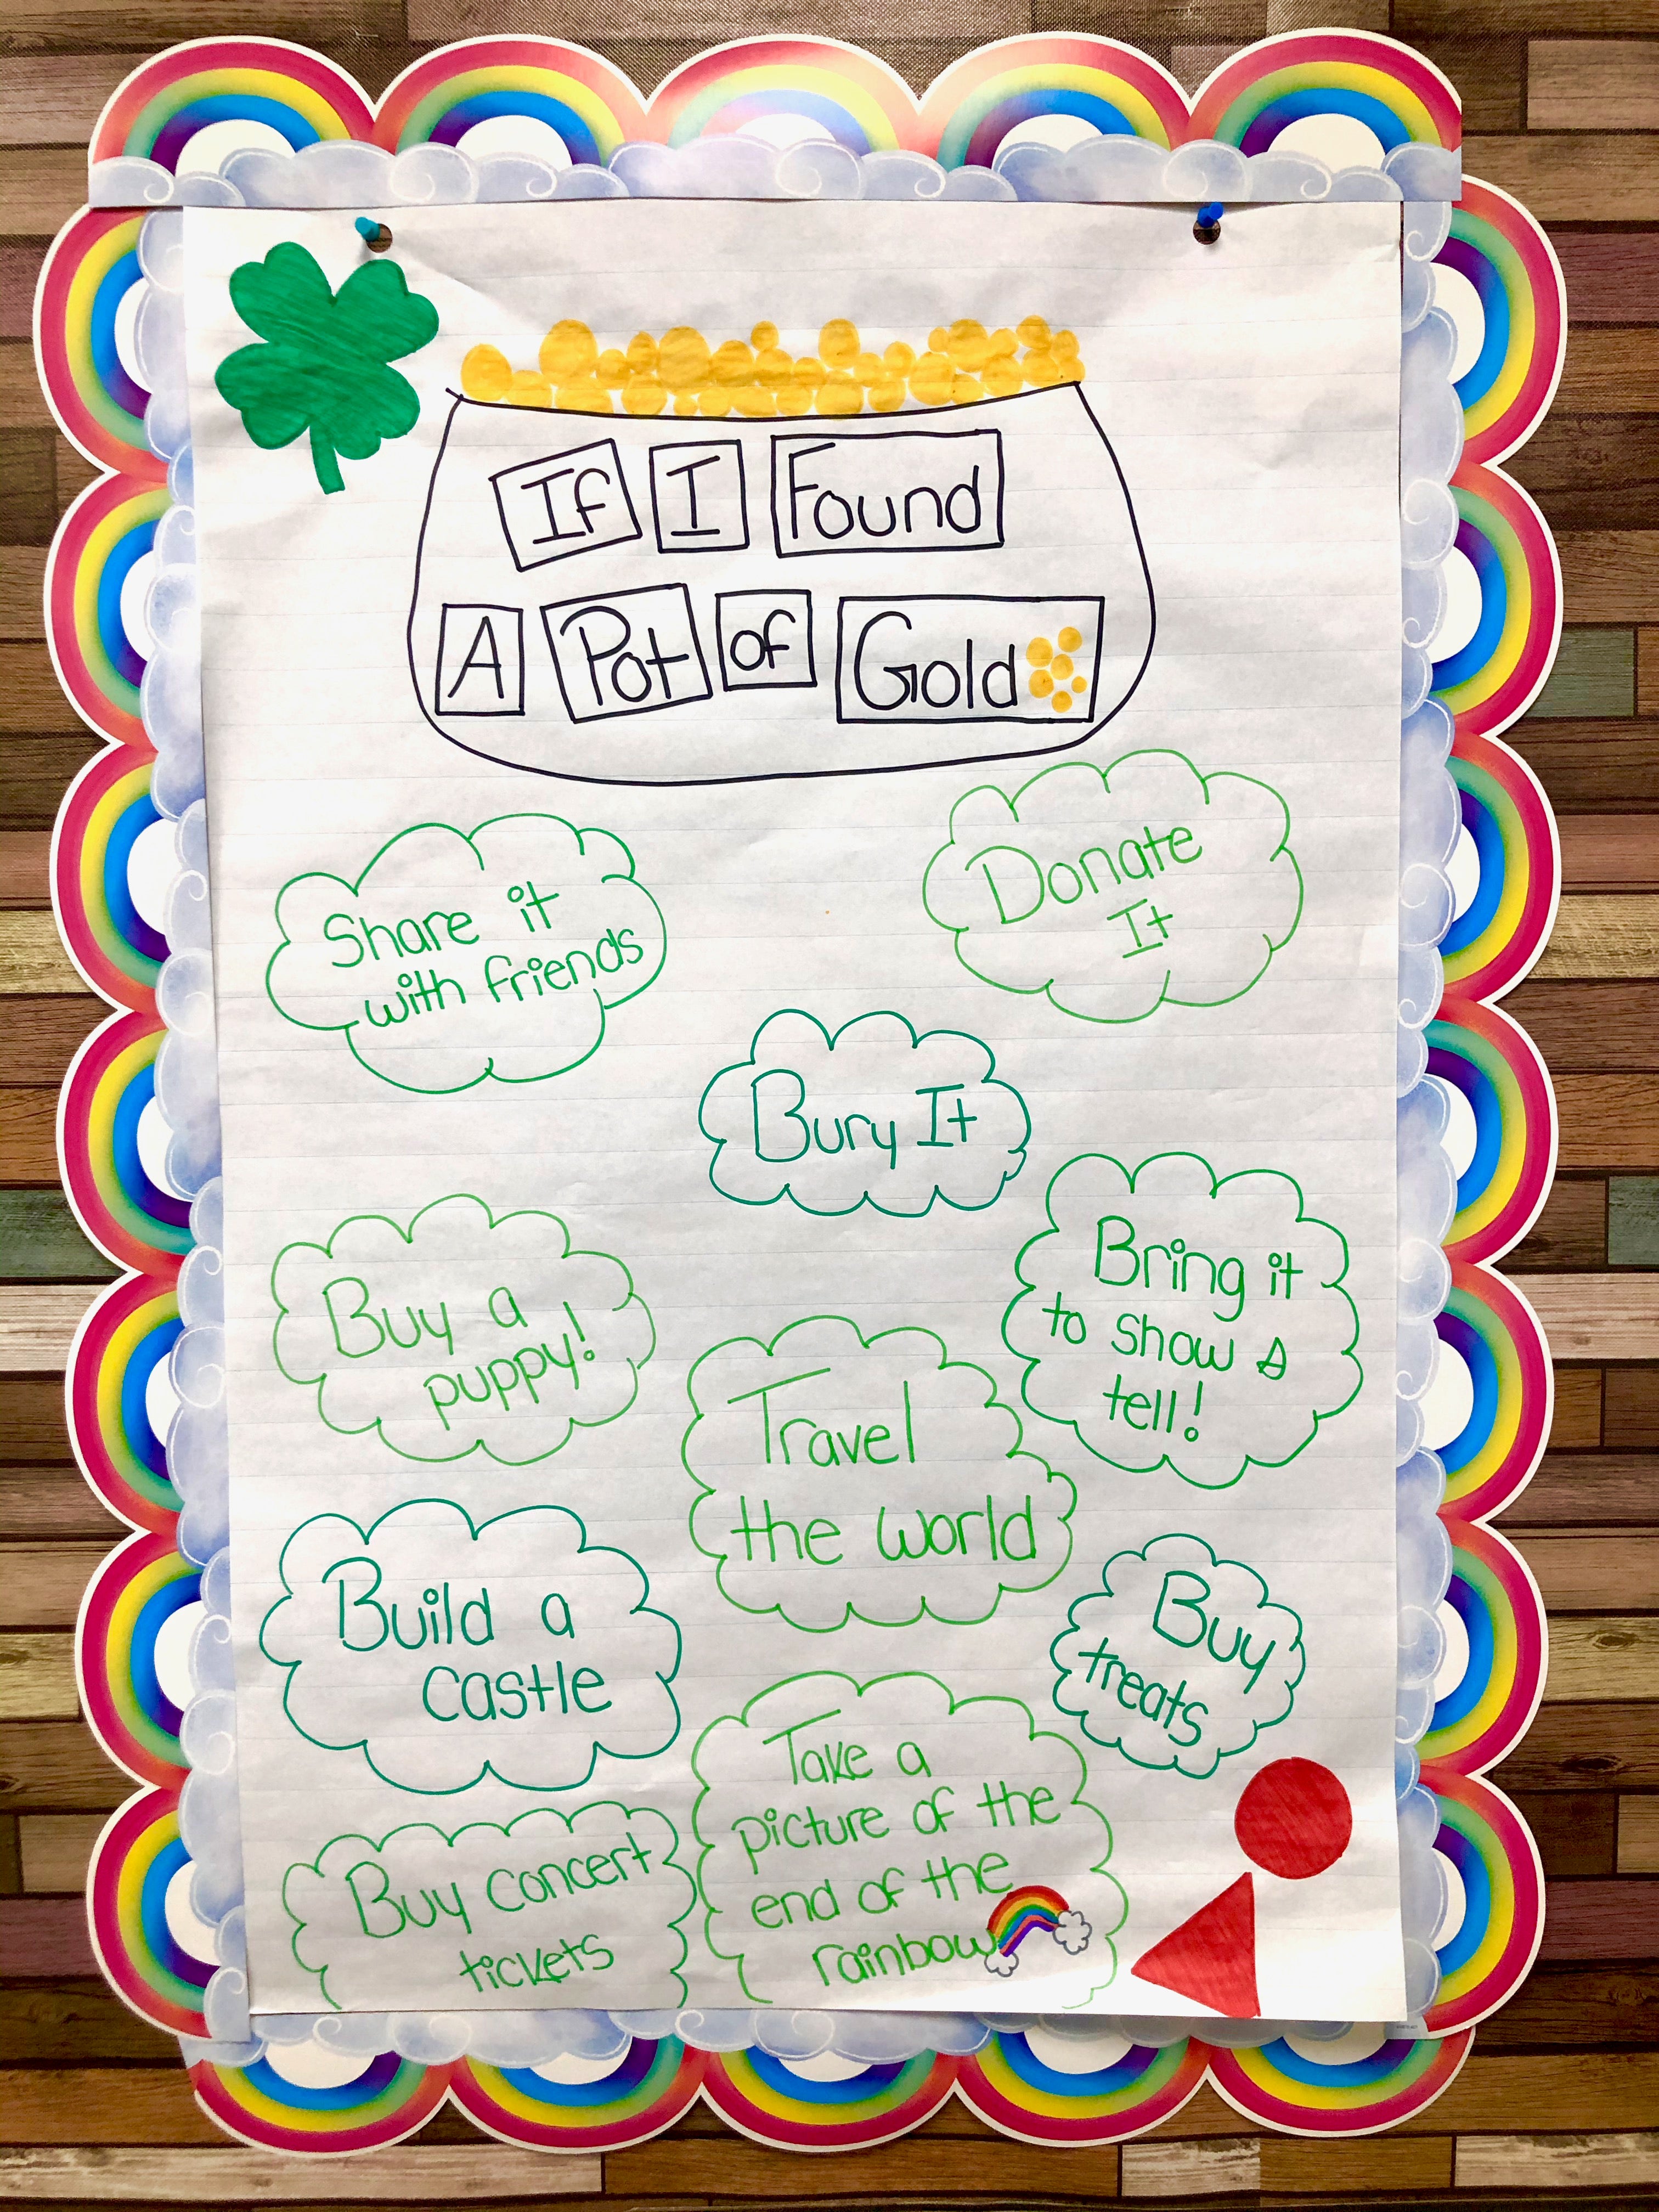 If I Found
A Pot of Gold
Share it
with friends
Donate
It
Bury It
Buy a
puppy!
Bring it
to show &
tell!
Travel
the world
Build a
castle
Buy
treats
Take a
picture of the
end of the
rainbow
Buy concert
tickets